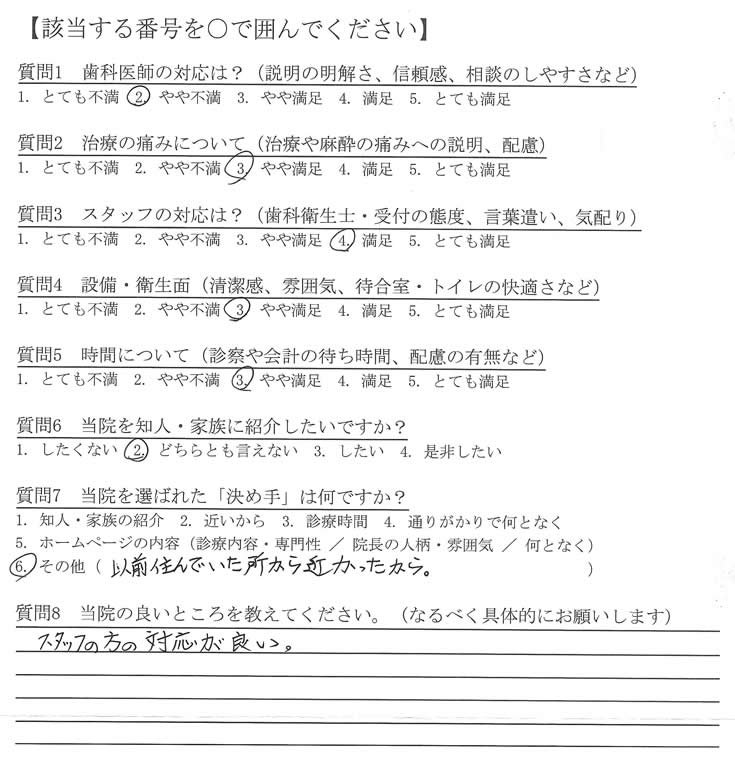 【該当する番号を○で囲んでください】
質問1 歯科医師の対応は？（説明の明解さ、信頼感、相談のしやすさなど）
1. とても不満 2. やや不満 3. やや満足 4. 満足 5. とても満足
質問2 治療の痛みについて（治療や麻酔の痛みへの説明、配慮）
1. とても不満 2. やや不満 3. やや満足 4. 満足 5. とても満足
質問3 スタッフの対応は？（歯科衛生士・受付の態度、言葉遣い、気配り）
1. とても不満 2. やや不満 3. やや満足 4. 満足 5. とても満足
質問4 設備・衛生面（清潔感、雰囲気、待合室・トイレの快適さなど）
1. とても不満 2. やや不満 3. やや満足 4. 満足 5. とても満足
質問5 時間について（診察や会計の待ち時間、配慮の有無など）
1. とても不満 2. やや不満 3. やや満足 4. 満足 5. とても満足
質問6 当院を知人・家族に紹介したいですか？
1. したくない 2. どちらとも言えない 3. したい 4. 是非したい
質問7 当院を選ばれた「決め手」は何ですか？
1. 知人・家族の紹介 2. 近いから 3. 診療時間 4. 通りがかりで何となく
5. ホームページの内容（診療内容・専門性 ／ 院長の人柄・雰囲気 ／ 何となく）
6. その他（ 以前住んでいた所から近かったから。 ）
質問8 当院の良いところを教えてください。（なるべく具体的にお願いします）
スタッフの方の対応が良い。